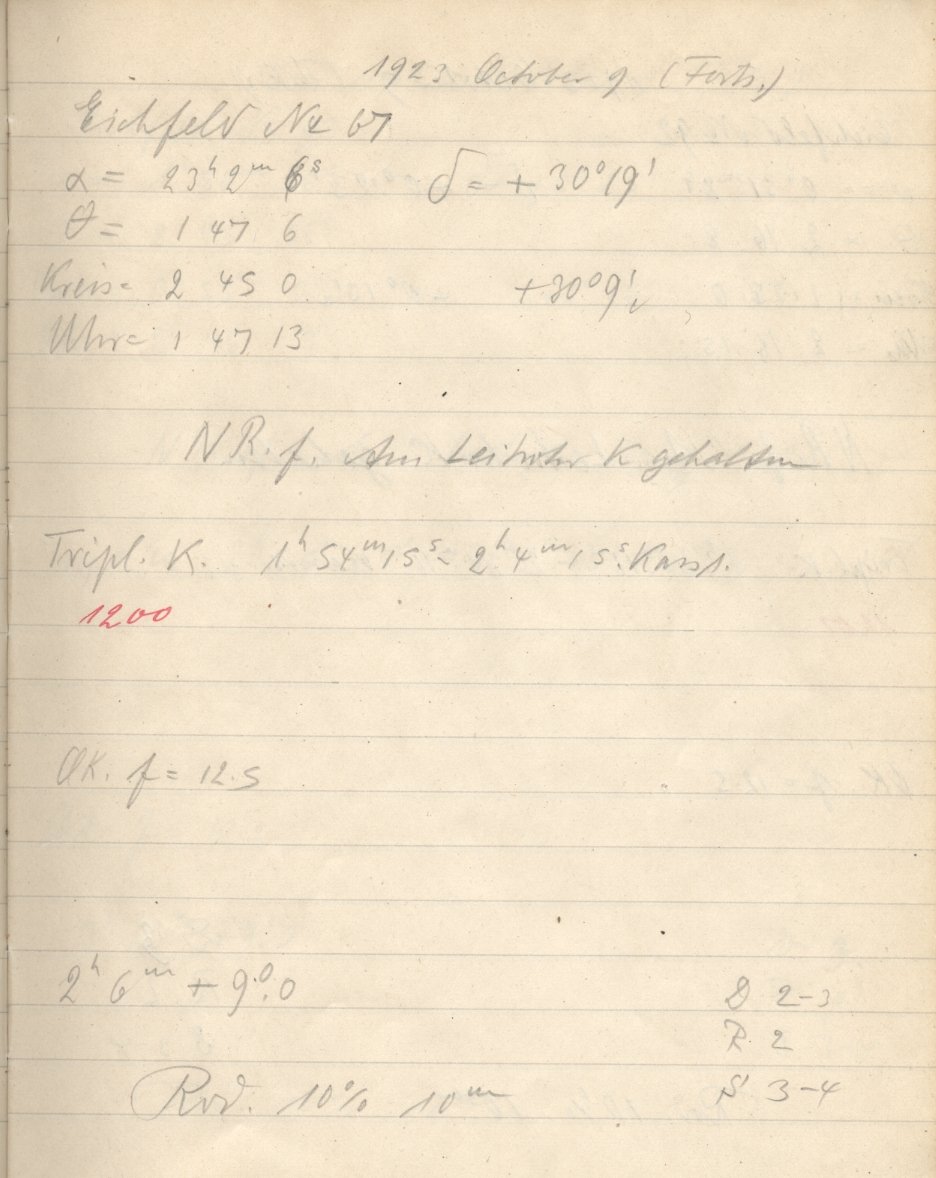 1923 October 9 (Forts.)
Eichfeld No 67
α = 23ʰ 2ᵐ 6ˢ δ = + 30° 19'
θ = 1 47 6
Kreis = 2 45 0 + 30° 9'
Uhr = 1 47 13
N R. f. Am Leitrohr K gehalten
Tripl. K. 1ʰ 54ᵐ 15ˢ - 2ʰ 4ᵐ 15ˢ. Kass 1.
1200
OK. f = 12.5
2ʰ 6ᵐ + 9°.0
D 2-3
R. 2
S 3-4
Rod. 10% 10ᵐ